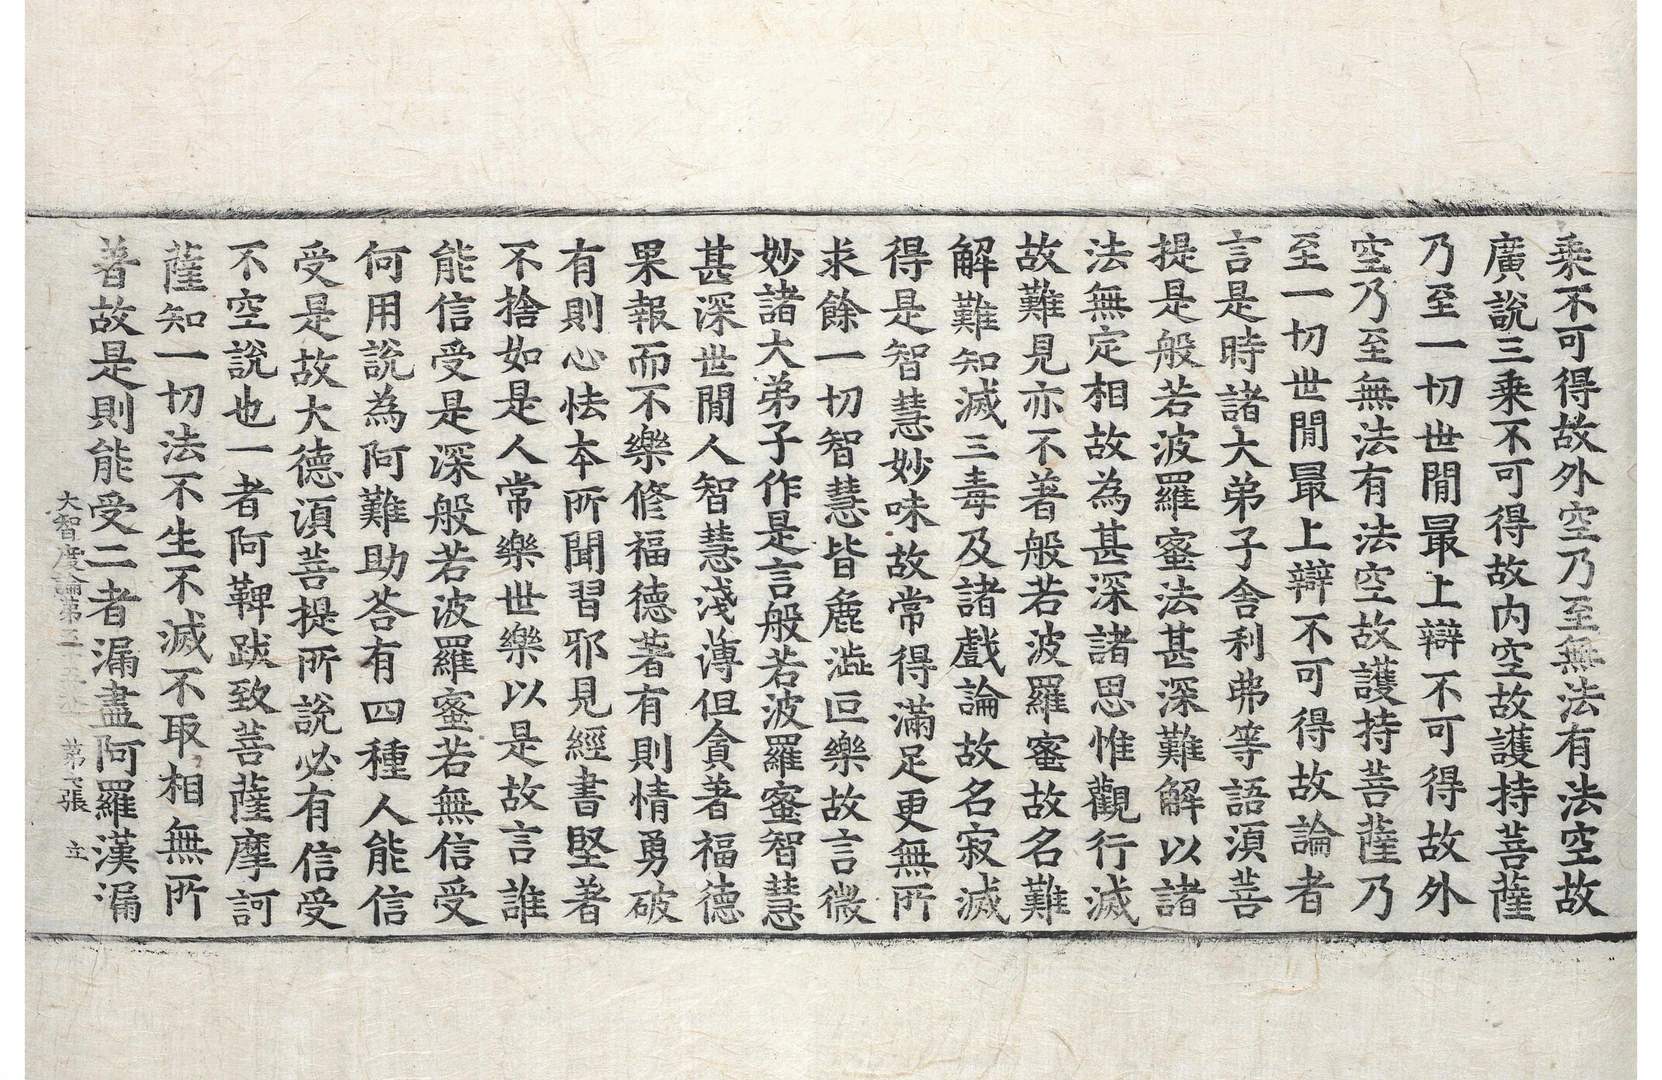 乘不可得故外空乃至無法有法空故
廣說三乘不可得故內空故護持菩薩
乃至一切世閒最上辯不可得故外
空乃至無法有法空故護持菩薩乃
至一切世閒最上辯不可得故論者
言是時諸大弟子舍利弗等語湏菩
提是般若波羅蜜法甚深難解以諸
法無定相故為甚深諸思惟觀行滅
故難見亦不著般若波羅蜜故名難
解難知滅三毒及諸戲論故名寂滅
得是智慧妙味故常得滿足更無所
求餘一切智慧皆麁澁叵樂故言微
妙諸大弟子作是言般若波羅蜜智慧
甚深世閒人智慧淺薄但貪著福德
果報而不樂修福德著有則情勇破
有則心怯本所聞習邪見經書堅著
不捨如是人常樂世樂以是故言誰
能信受是深般若波羅蜜若無信受
何用說為阿難助荅有四種人能信
受是故大德湏菩提所說必有信受
不空說也一者阿鞞跋致菩薩摩訶
薩知一切法不生不滅不取相無所
著故是則能受二者漏盡阿羅漢漏
大智度論第五 第 張 立